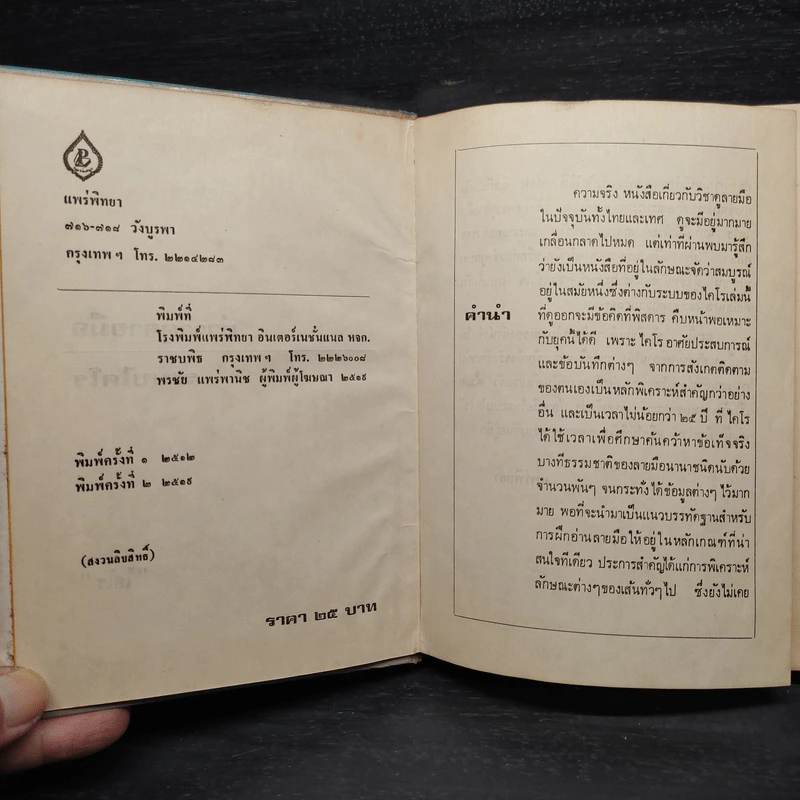 แพร่พิทยา
๗๑๖-๗๑๘ วังบูรพา
กรุงเทพ ฯ โทร. ๒๒๑๔๒๘๓
พิมพ์ที่
โรงพิมพ์แพร่พิทยา อินเตอร์เนชั่นแนล หจก.
ราชบพิธ กรุงเทพ ฯ โทร. ๒๒๒๖๐๐๘
พรชัย แพร่พานิช ผู้พิมพ์ผู้โฆษณา ๒๕๑๙
พิมพ์ครั้งที่ ๑ ๒๕๑๒
พิมพ์ครั้งที่ ๒ ๒๕๑๙
(สงวนลิขสิทธิ์)
ราคา ๒๕ บาท
คำนำ
ความจริง หนังสือเกี่ยวกับวิชาดูลายมือ
ในปัจจุบันทั้งไทยและเทศ ดูจะมีอยู่มากมาย
เกลื่อนกลาดไปหมด แต่เท่าที่ผ่านพบมารู้สึก
ว่ายังเป็นหนังสือที่อยู่ในลักษณะจัดว่าสมบูรณ์
อยู่ในสมัยหนึ่งซึ่งต่างกับระบบของไคโรเล่มนี้
ที่ดูออกจะมีข้อคิดที่พิสดาร คืบหน้าพอเหมาะ
กับยุคนี้ได้ดี เพราะ ไคโร อาศัยประสบการณ์
และข้อบันทึกต่างๆ จากการสังเกตติดตาม
ของตนเองเป็นหลักพิเคราะห์สำคัญกว่าอย่าง
อื่น และเป็นเวลาไม่น้อยกว่า ๒๕ ปี ที่ ไคโร
ได้ใช้เวลาเพื่อศึกษาค้นคว้าหาข้อเท็จจริง
บางทีธรรมชาติของลายมือนานาชนิดนับด้วย
จำนวนพันๆ จนกระทั่งได้ข้อมูลต่างๆ ไว้มาก
มาย พอที่จะนำมาเป็นแนวบรรทัดฐานสำหรับ
การฝึกอ่านลายมือให้อยู่ในหลักเกณฑ์ที่น่า
สนใจทีเดียว ประการสำคัญได้แก่การพิเคราะห์
ลักษณะต่างๆของเส้นทั่วๆไป ซึ่งยังไม่เคย